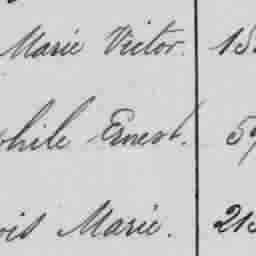 Marie Victor.
phile Ernest.
ois Marie.